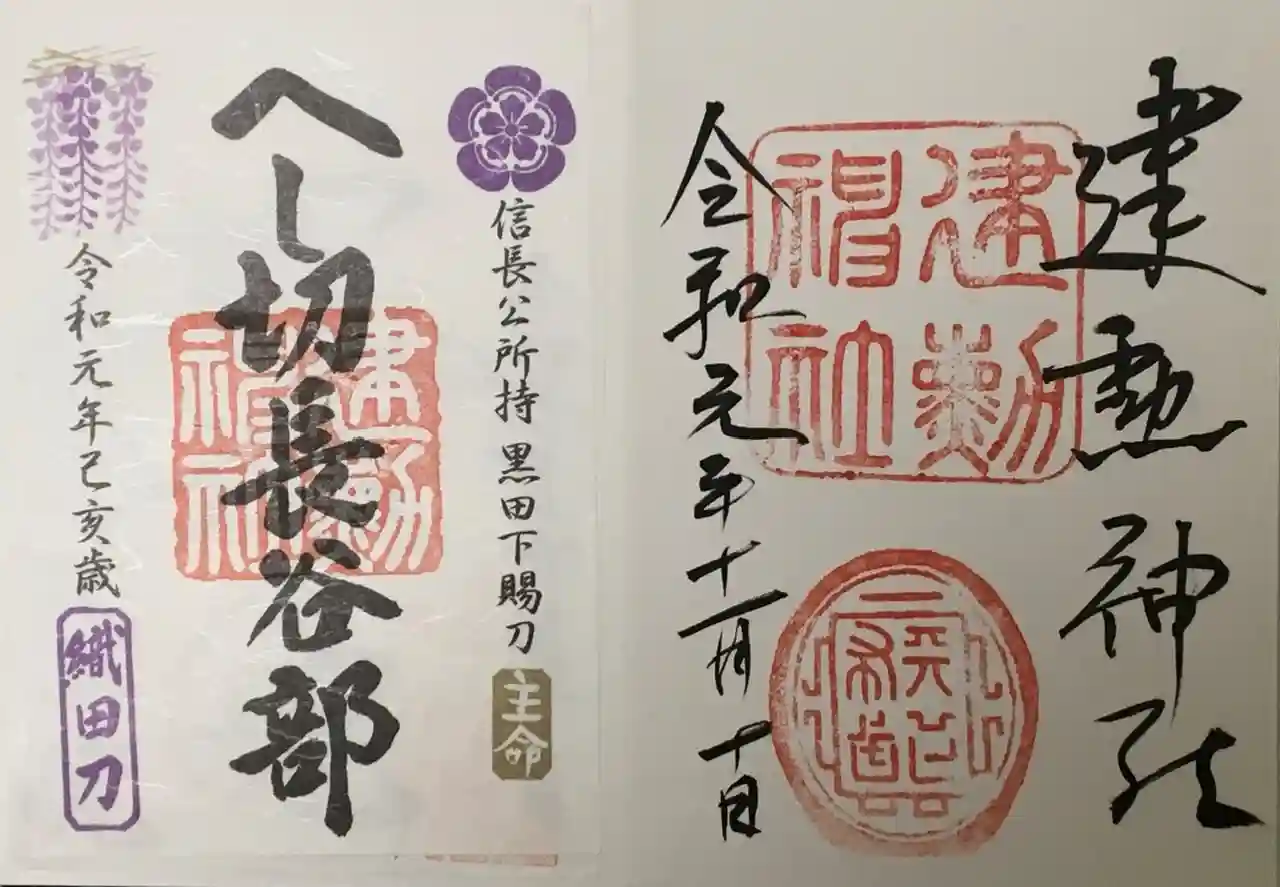 建勲神社
建勲
神社
令和元年十一月十日
信長公所持 黒田下賜刀
主命
へし切長谷部
建勲
神社
令和元年己亥歳
織田刀